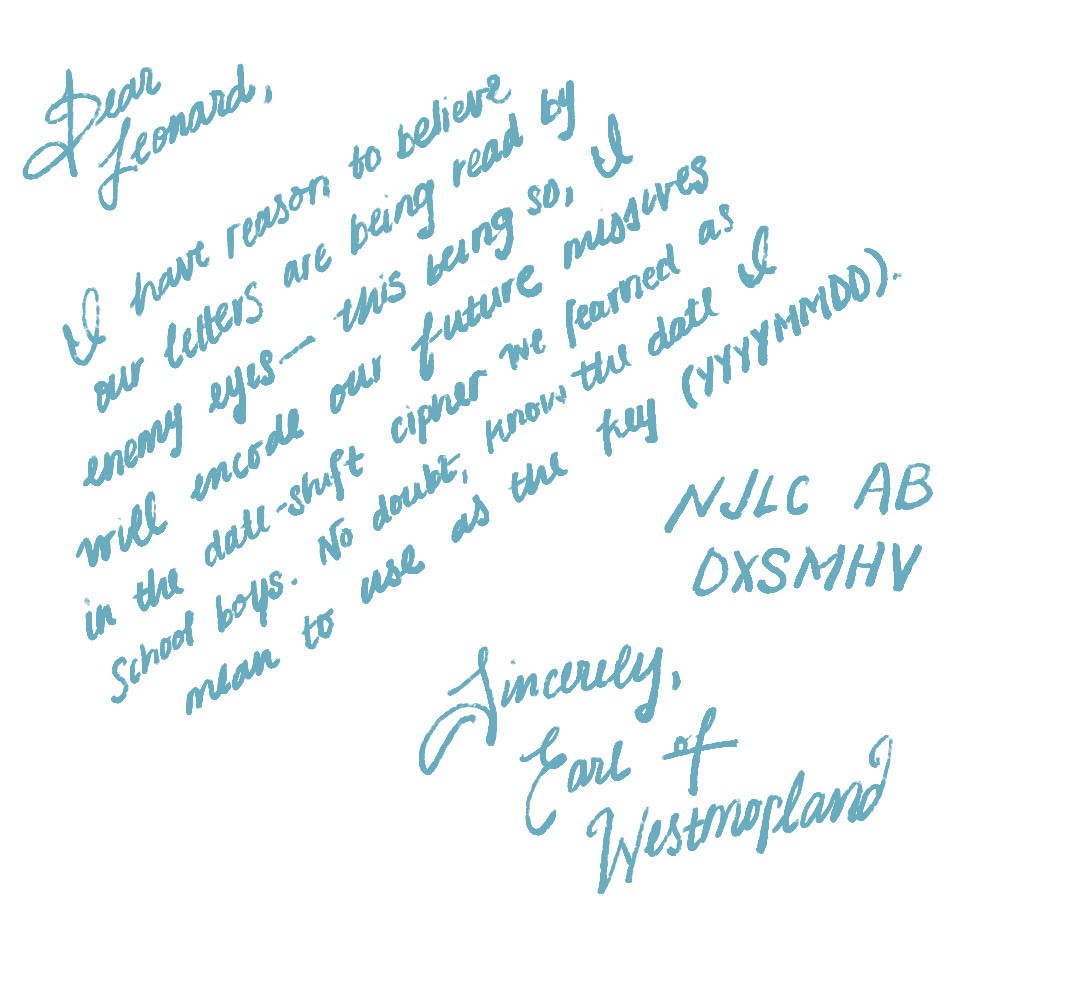 Dear
Leonard,
I have reason to believe
our letters are being read by
enemy eyes— this being so, I
will encode our future missives
in the date-shift cipher we learned as
school boys. No doubt, know the date I
mean to use as the key (YYYYMMDD).
NJLC AB
DXSMHV
Sincerely,
Earl of
Westmorland